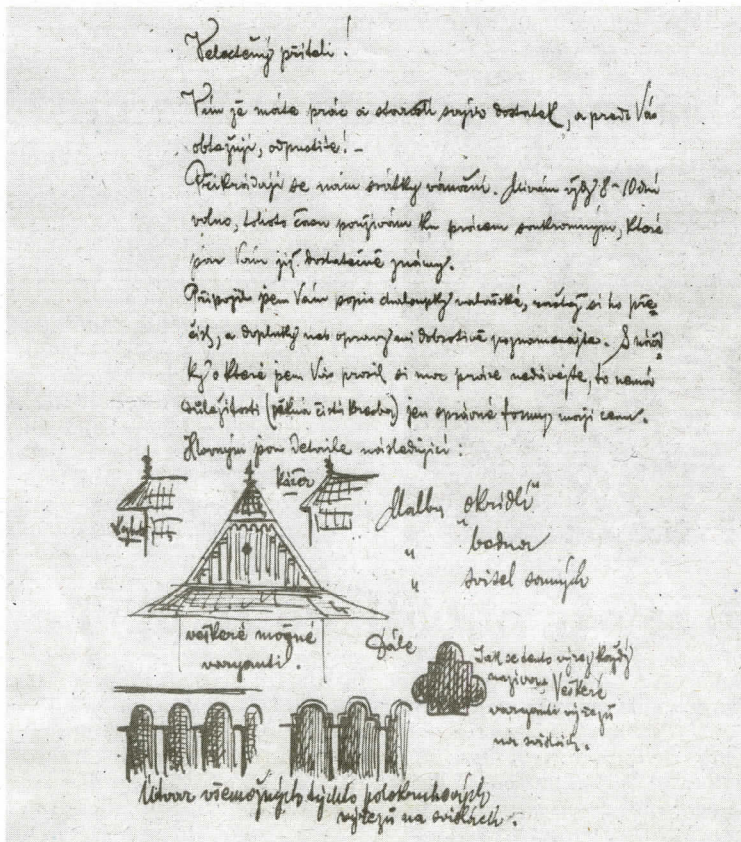 Velectěný příteli!
Vím že máte prác a starostí svých dostatek, a přece Vás
obtěžuji, odpustíte! –
Přikrádají se nám svátky vánoční. Mívám vždy 8–10 dní
volno, tohoto času používám ku prácem soukromným, které
jsou Vám již dostatečně známy.
Připojil jsem Vám popis chaloupky valašské, račtež si ho pře-
čísti, a doplňky neb opravy mi dobrotivě poznamenejte. S náčrt-
ky o které jsem Vás prosil si moc práce nedávejte, to nemá
důležitosti (pěkná čistá kresba) jen správné formy mají cenu.
Hlavným jsou detaile následující:
káčer
Malby okřídlí
" bednа
" svisel samých
veškeré možné
varyanti.
Dále
Jak se tento výřez každý
nazývá. Veškeré
varyanti výřezů
na svislích.
Útvar všemožných těchto polokruhových
výřezů na svislích.